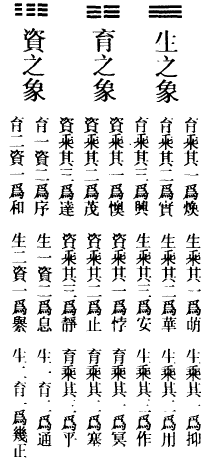 生之象
育之象
資之象
育乘其一爲煥
育乘其二爲實
育乘其三爲興
資乘其一爲懊
資乘其二爲茂
資乘其三爲達
育一資二爲序
育二資一爲和
生乘其一爲萌
生乘其二爲華
生乘其三爲安
資乘其一爲悖
資乘其二爲止
資乘其三爲靜
生一資二爲息
生二資一爲
生乘其一爲抑
生乘其二爲用
生乘其三爲作
育乘其一爲冥
育乘其二爲塞
育乘其三爲平
生育爲通
生育爲幾正